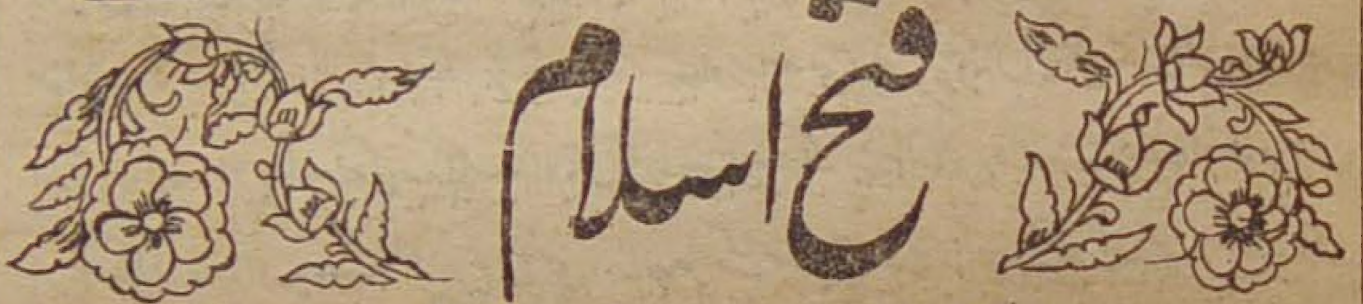 فتح اسلام